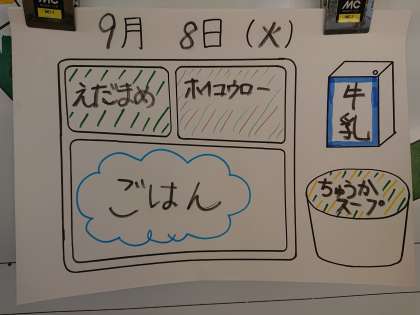 MC
MC
9月 8日(火)
えだまめ
ホイコウロー
牛乳
ごはん
ちゅうか
スープ